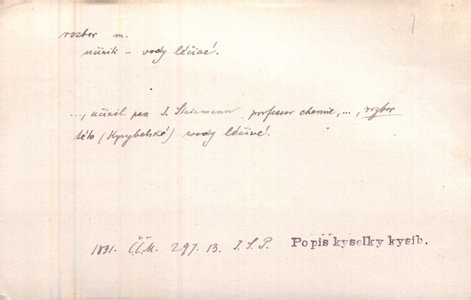 rozbor m.
učinit – vody léčivé.
..., učinil pan J. Steinmann professor chemie, ..., rozbor
této (Kysybelské) wody léčivé.
1831. ČČM. 297. 13. J. S. P. Popis kyselky kysib.